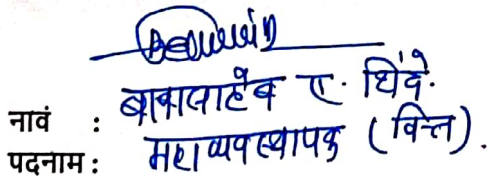 नावं : बाबासाहेब ए. शिंदे.
पदनाम : महाव्यवस्थापक (वित्त).